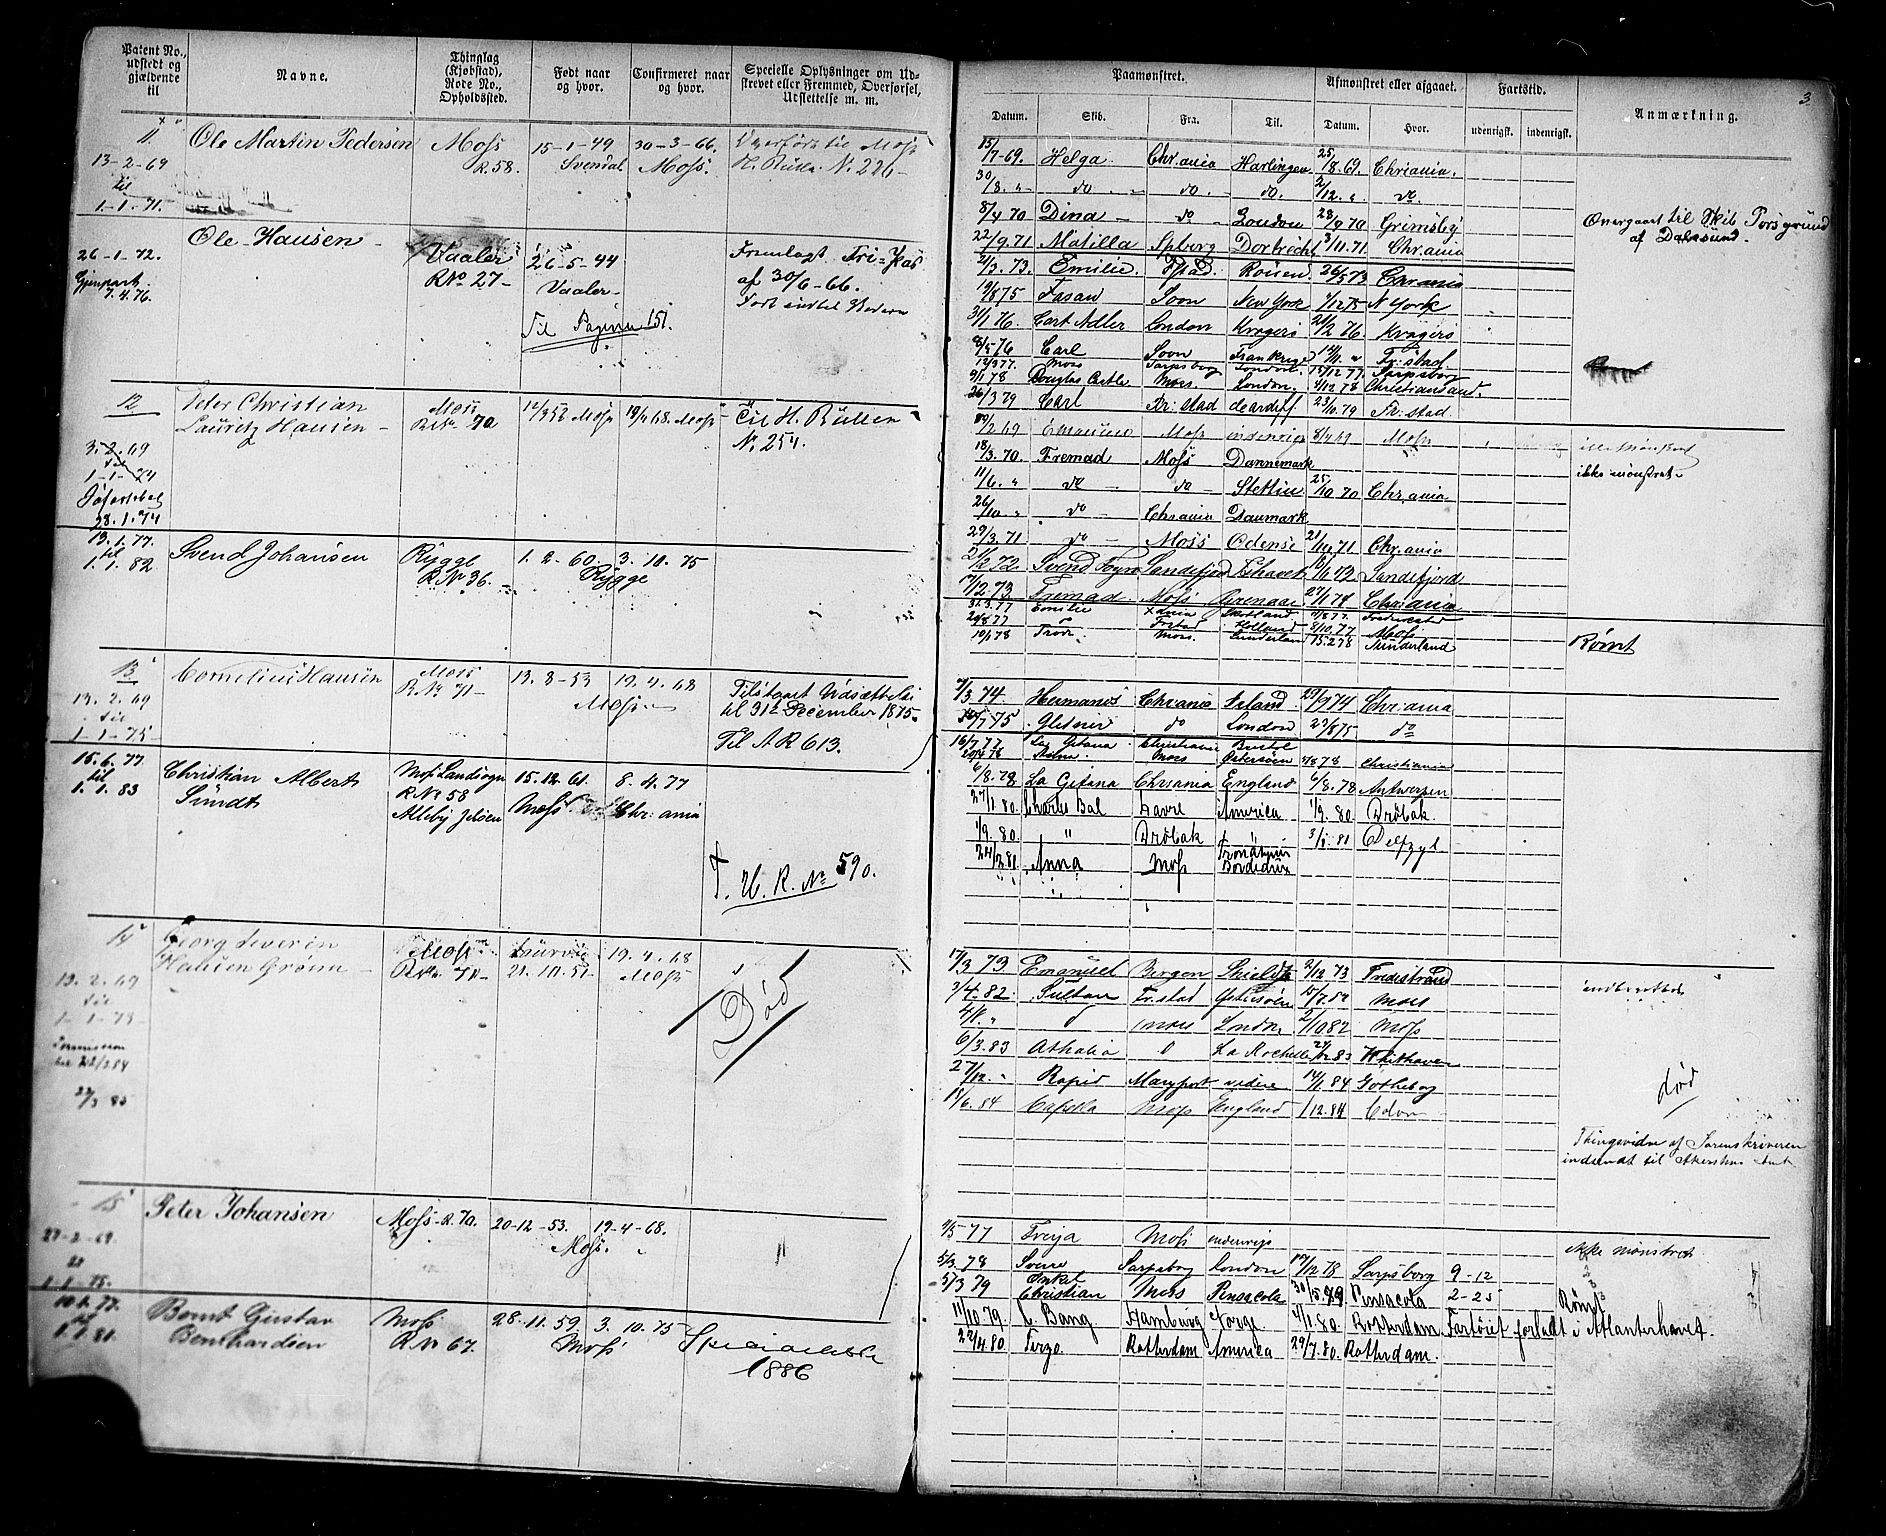 Patent No., udstedt og gjældende til
Navne.
Thinglag (Kjøbstad), Rode No., Opholdssted.
Født naar og hvor.
Confirmeret naar og hvor.
Specielle Oplysninger om Udskrevet eller Fremmed, Overførsel, Udslettelse m. m.
11
Ole Martin Pedersen
Moss
R. 58.
15-1-49
Svendal
30-3-66.
Moss.
Overført til Moss
H. Rulle N. 226-
13-2-69
til
1-1-71.
Ole Hansen
26-1-72.
Gjenpart
7.4.76.
Vaaler
R No 27-
26-5-44
Vaaler-
Til Pagina 151.
Fremlagt Fri-Pas
af 30/6-66.
12
Peter Christian
Lauritz Hansen-
Moss
R No 70
12/9 52 Moss
19/4 68. Moss
Til H. Rullen
No. 254.
3-2-69
til
1-1-74
28.1.74
13.1.77.
til
1.1.82
Svend Johansen
Rygge
R. No 36.
1. 2-60.
3. 10. 75
Rygge
13
Cornelius Hansen
Moss
R No 71-
13-8-53
19-4-68
Moss-
Tilstaaet Udsættelse
til 31te December 1875.
Til A R 613.
13-2-69
til
1-1-75
15.6.77
til
1.1.83
Christian Albert
Sundt
Moss Landsogn
R No 58
Alleby Jeløen
15.12.61.
Moss
8.4.77
Chr: ania
T. H. R. No 590.
14
Georg Severin
Hansen Grønn-
Moss
R No 71-
Laurvig
21.10.51-
19.4.68
Moss
Død
13-2-69
til
1-1-73
27/3 85
15
Peter Johansen
Moss-R. 70.
20-12-53.
19-4-68.
Moss.
27-2-69.
til
1-1-75.
10.1.77.
til
1.1.81.
Bernt Gustav
Bernhardsen
Moss
R No 67.
28-11.59
3. 10. 75
Moss
1886
3.
Paamønstret.
Afmønstret eller afgaaet.
Fartstid.
Anmærkning.
Datum.
Skib.
Fra.
Til.
Datum.
Hvor.
udenrigst.
indenrigst.
15/7-69. Helga Chr.ania Harlingen 25/8.69. Chriania.
30/8. " do do. do. 2/12. " do.
8/4 70 Dina- do London 28/9 70 Grimsby
Overgaaet til Skib Porsgrund
af
22/9.71 Matilla Spberg Dordrecht 13/11.71. Chr.ania
21/3.73. Emilie. Fstad. Rouen. 26/5 73 Chr.ania
19/8 75 Fasan Soon New York 7/12 75 N York
31/1 76. Carl Adler London Kragerö 21/2 76. Kragerö
8/5 76 Carl Soon Frankrige 12/11. " Fr: stad
12/3 77. Moss Sarpsborg London. 15/12 77. Sarpsborg
9/1 78 Douglas Castle Moss London. 4/12 78 Christiansand.
26/3 79 Carl Fr: stad Cardiff. 23/10. 79 Fr: stad
10/2 69 Moss indenrigs 8/4 69 Moss
18/3.70. Fremad Moss Dannemark
ikke mønstret.
11/6. " do- do- Stettin 25/10.70 Chr.ania
26/10 " do- Chrania Danmark
29/3.71 do- Moss Odense 21/10.71 Chr.ania
21/2 72. Svend Foyn Sandefjord Ishavet Sandefjord
17/12 73 Fremad. Moss Grenaae 27/1 74 Chr.ania
31.3.77 Emilie Xania Skotland 11/8 77. Fredrikstad
20/8 77 do Frstad Holland 8/10.77 Moss
10/1 78 Moss Sunderland 15.2 78 Sunderland
Rømt
7/3 74 Hermanos Chr.ania Irland 29/9 74 Chr:ania
7 75 Glitner do London 29/8 75 do
16/7 77. La Gitana. Christiania Bristol
20/4 78 Moss Østersöen 4/8 78 Christiania
6/8.78 La Gitana Chr.ania England 6/8.78 Antwerpen
27/1 80. Charles Bal Havre Amerika 1/9. 80 Drøbak.
1/9. 80. " Drøbak Trondhjem 3/1. 81 Delfzyl
24/2 81. Anna Moss Bordeaux
17/3 73 Emanuel Bergen Shields 2/12 73 Fredrikstad
3/4. 82. Sultan Fr. stad Østersöen 15/7. 82 Moss
4/8. " " Moss London 2/10 82 Moss
6/3. 83 Athalia " La Rochelle 27/12 83 Whithaven
27/12. " Rapid Maryport videre 14/1 84 Gøtheborg
15/6. 84 Capella Moss England 1/12. 84
død
Thingsvidne af Sorenskriveren
indsendt til Akershus Amt
1/5 77 Freya Moss indenrigs
ikke mønstret
5/3 78 Sarpsborg London 17/12 78 Sarpsborg 9-12
5/3 79 Enkel Christian Moss Pensacola 30/5 79 Pensacola 2-25
Rømt
11/10 79. L. Bang Hamburg Norge. 4/1. 80. Rotterdam Fartöiet forladt i Atlanterhavet.
22/4 80. Terzo Rotterdam Amerika 29/7. 80. Rotterdam.